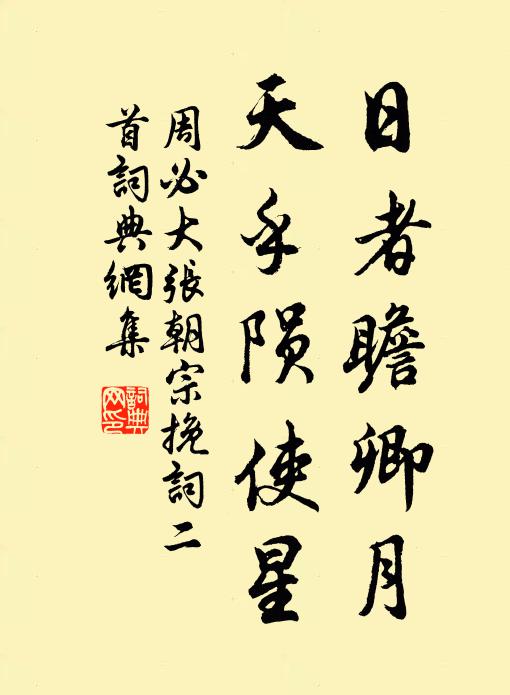 日者瞻卿月
天乎陨使星
周必大張朝宗挽詞二
首詞典網集
詞典
网印